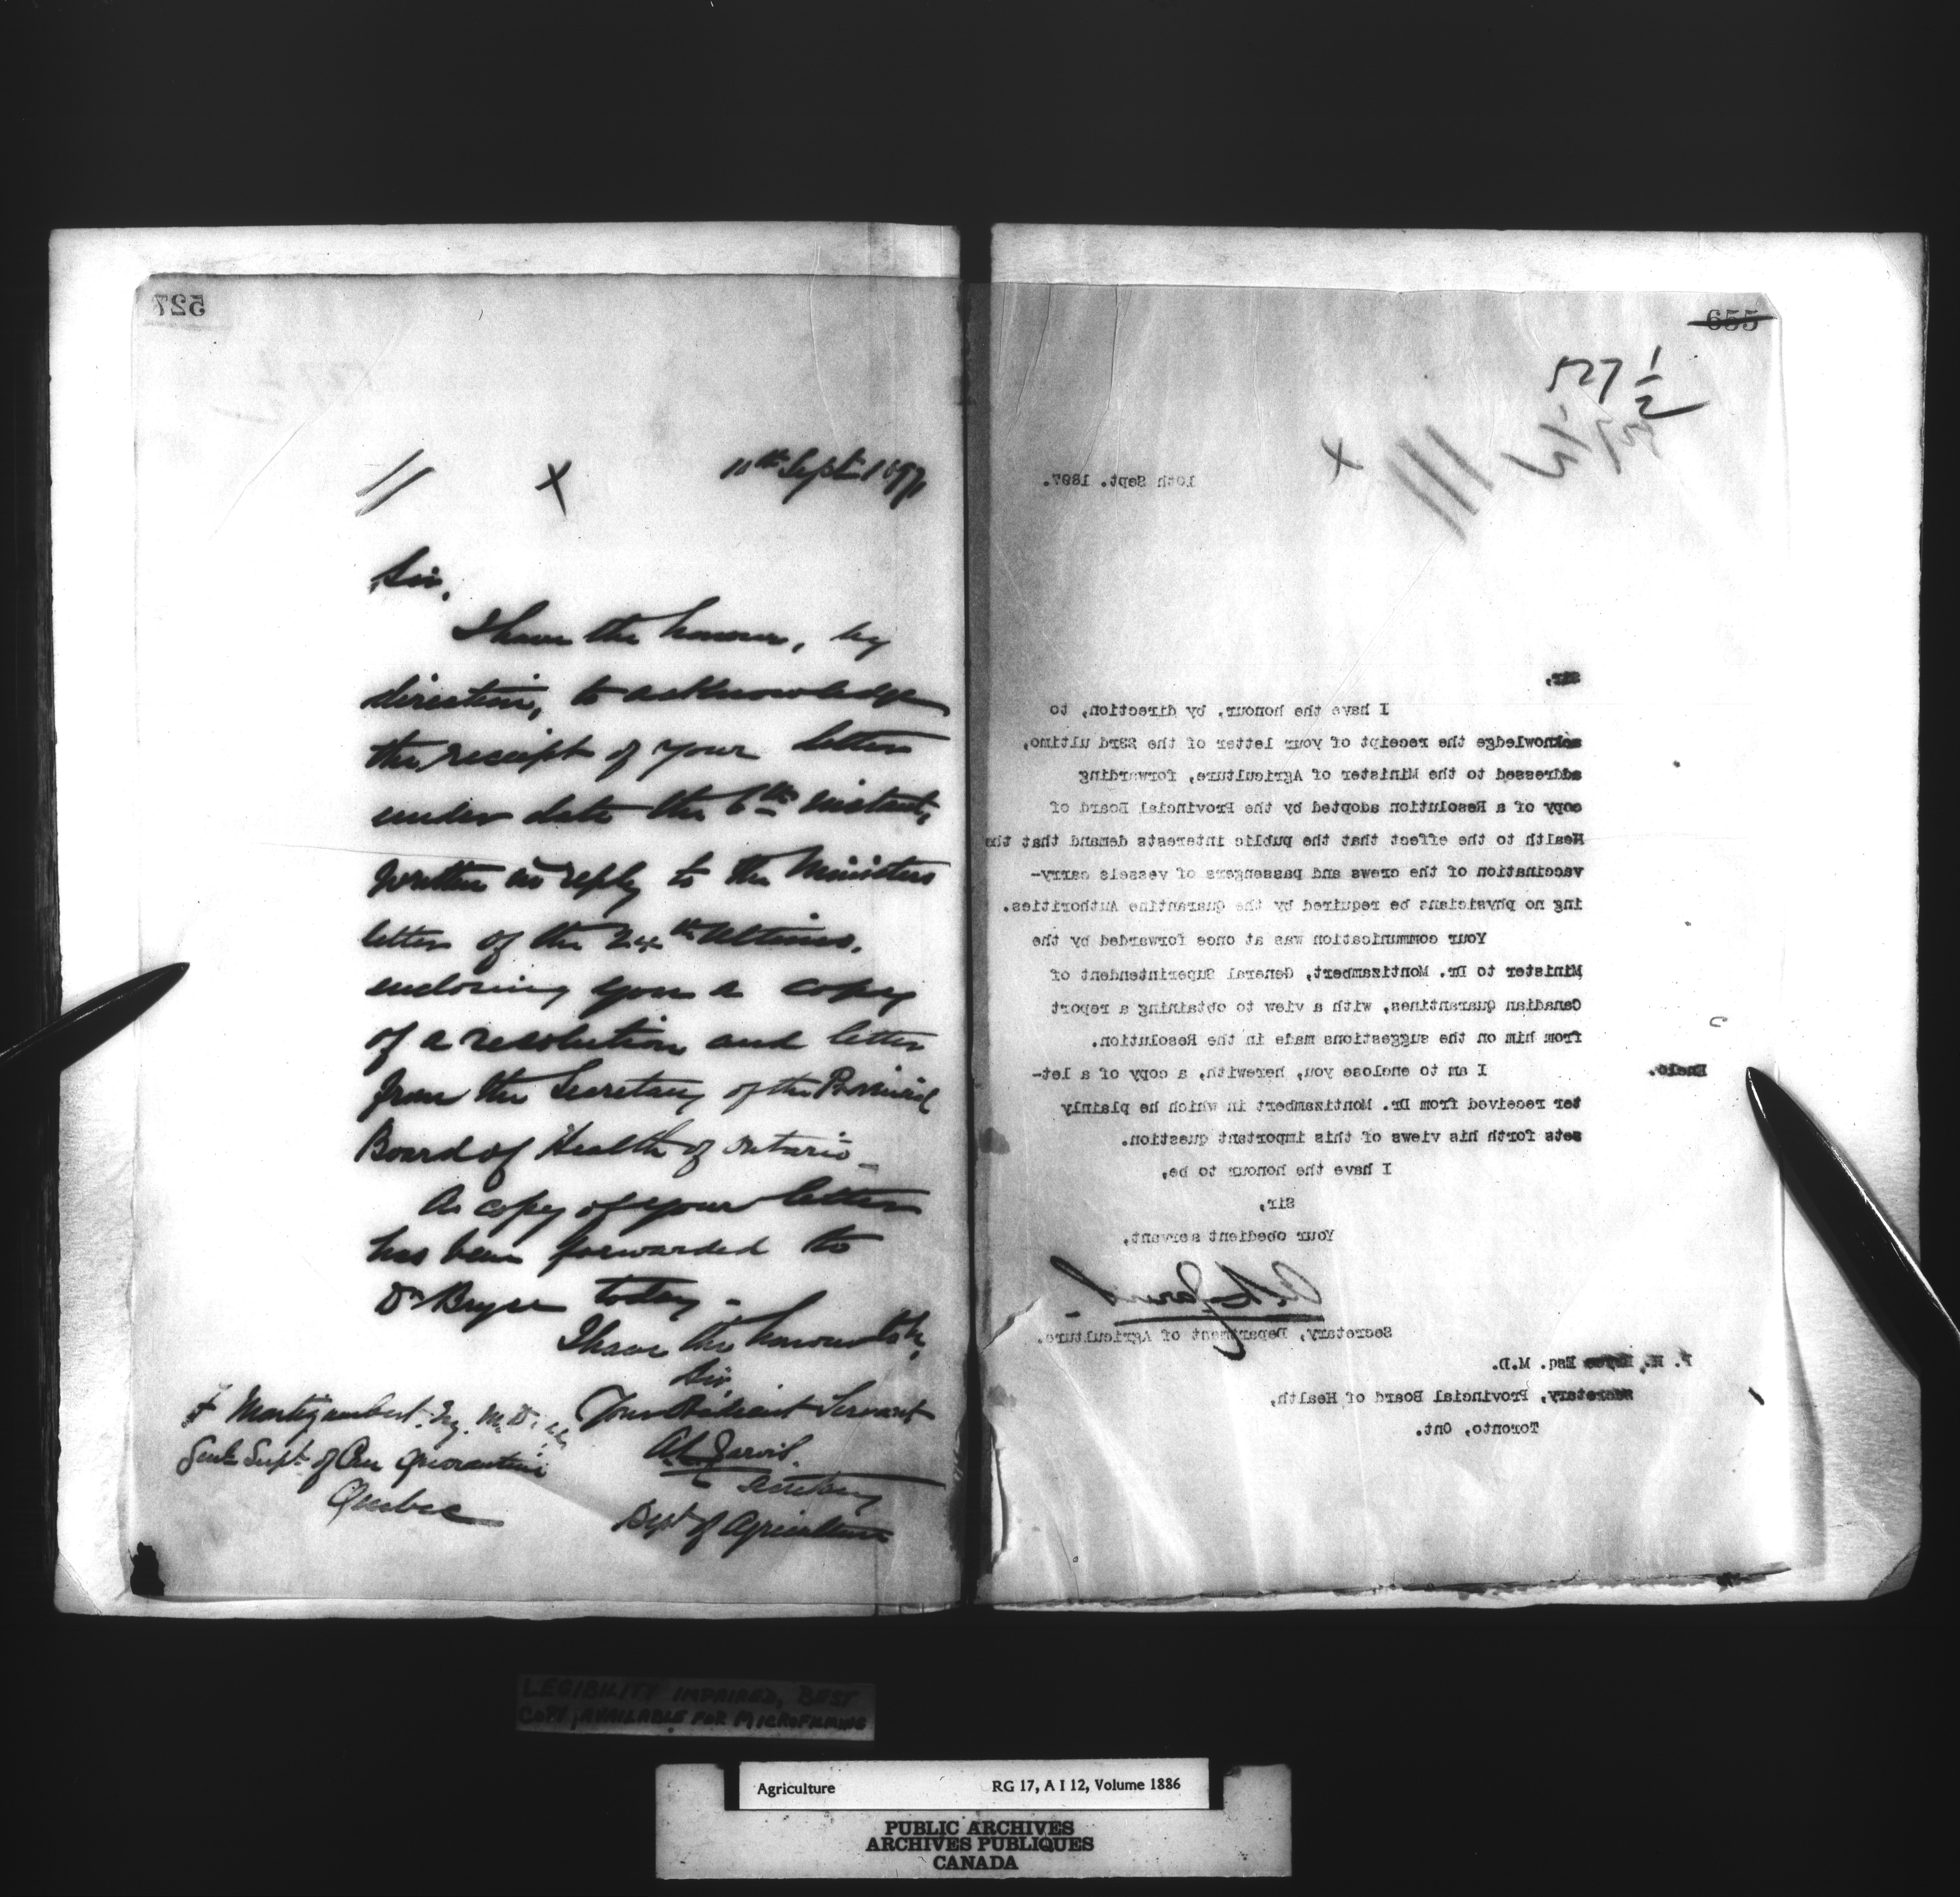 527
10th Sept 1897
Sir,
I have the honour, by
direction, to acknowledge
the receipt of your letter
under date the 6th instant,
written in reply to the Ministers
letter of the 24th Ultimo,
enclosing you a copy
of a resolution and letter
from the Secretary of the Provincial
Board of Health of Ontario
A copy of your letter
has been forwarded to
Dr Bryce today.
I have the honour to be,
Sir
Your Obedient Servant
A. L. Jarvis.
Secretary
Dept of Agriculture
F Montizambert. Esq. M.D.
Genl Supt of Can Quarantine
Quebec
655
527 1/2
10th Sept. 1897.
Sir,
I have the honour, by direction, to
acknowledge the receipt of your letter of the 23rd ultimo,
addressed to the Minister of Agriculture, forwarding
copy of a Resolution adopted by the Provincial Board of
Health to the effect that the public interests demand that the
vaccination of the crews and passengers of vessels carry-
ing no physicians be required by the Quarantine Authorities.
Your communication was at once forwarded by the
Minister to Dr. Montizambert, General Superintendent of
Canadian Quarantines, with a view to obtaining a report
from him on the suggestions made in the Resolution.
I am to enclose you, herewith, a copy of a let-
Enclo.
ter received from Dr. Montizambert in which he plainly
sets forth his views of this important question.
I have the honour to be,
Sir,
Your obedient servant,
A. L. Jarvis.
Secretary, Department of Agriculture.
P. H. Bryce Esq. M.D.
Secretary, Provincial Board of Health,
Toronto, Ont.
LEGIBILITY IMPAIRED, BEST
COPY AVAILABLE FOR MICROFILMING
Agriculture RG 17, A I 12, Volume 1886
PUBLIC ARCHIVES
ARCHIVES PUBLIQUES
CANADA